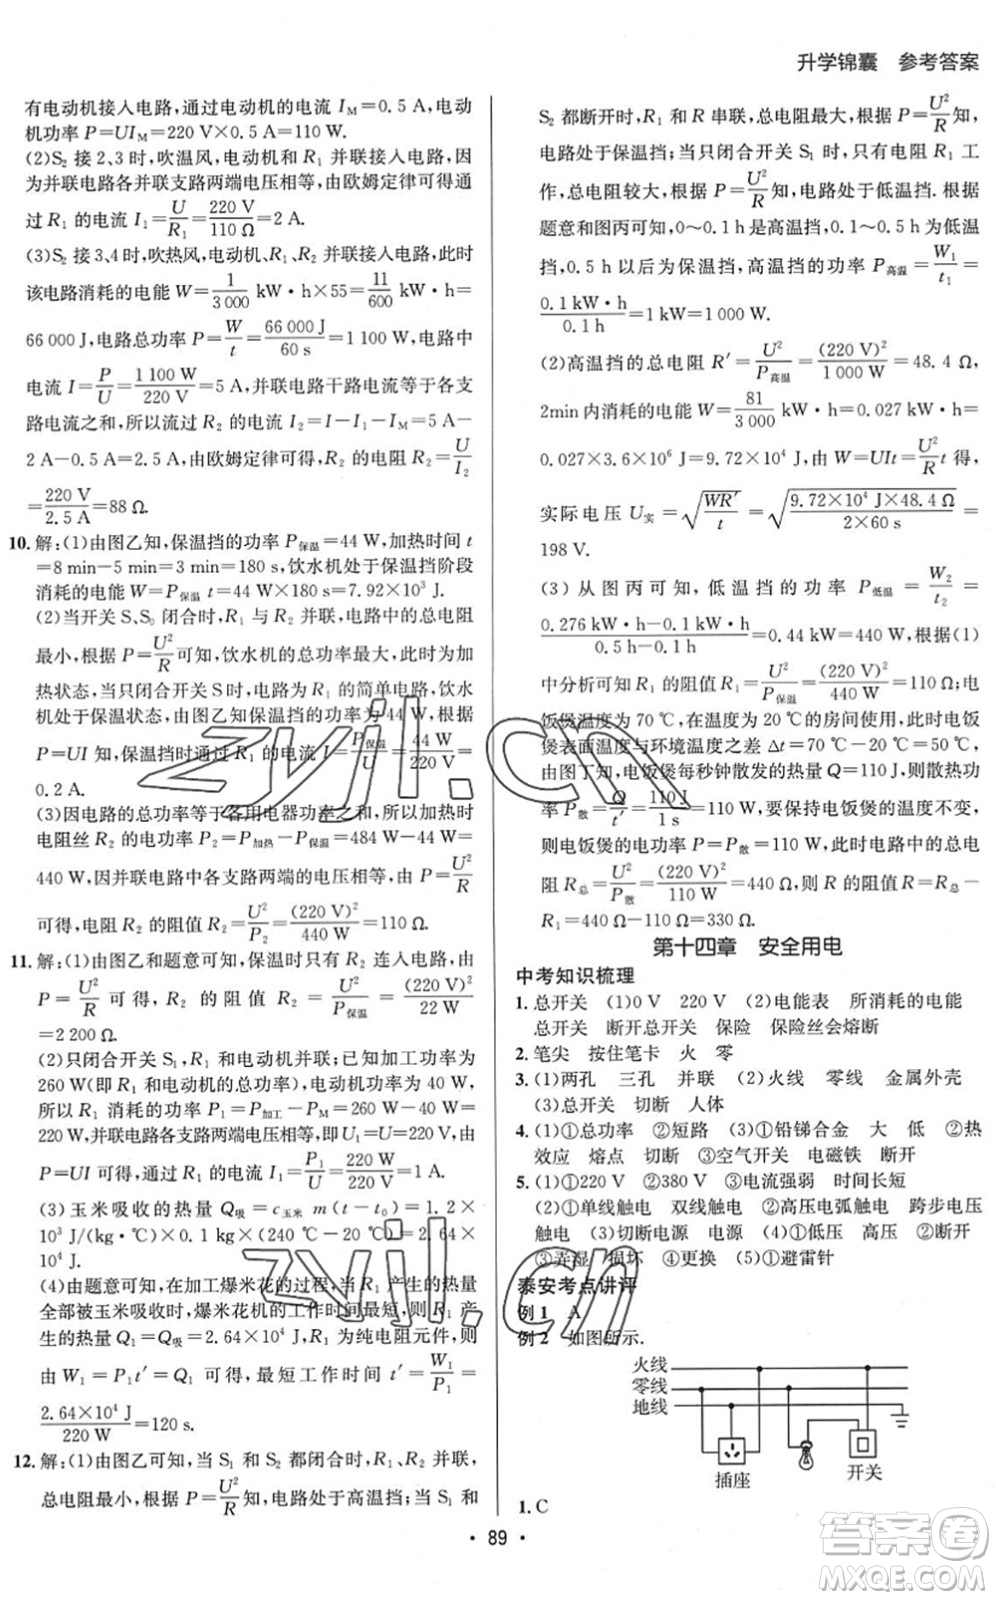 升学锦囊 参考答案
有电动机接入电路,通过电动机的电流 I_M=0.5 A,电动
机功率 P=UI_M=220 V×0.5 A=110 W.
(2)S₂ 接 2、3 时,吹温风,电动机和 R₁ 并联接入电路,因
为并联电路各并联支路两端电压相等,由欧姆定律可得通
过 R₁ 的电流 I₁=U/R₁=220 V/110 Ω=2 A.
(3)S₂ 接 3、4 时,吹热风,电动机、R₁、R₂ 并联接入电路,此时
该电路消耗的电能 W=1/3 000 kW·h×55=11/600 kW·h=
66 000 J,电路总功率 P=W/t=66 000 J/60 s=1 100 W,电路中
电流 I=P/U=1 100 W/220 V=5 A,并联电路干路电流等于各支
路电流之和,所以流过 R₂ 的电流 I₂=I-I₁-I_M=5 A-
2 A-0.5 A=2.5 A,由欧姆定律可得,R₂ 的电阻 R₂=U/I₂
=220 V/2.5 A=88 Ω.
10. 解:(1)由图乙知,保温挡的功率 P保温=44 W,加热时间 t
=8 min-5 min=3 min=180 s,饮水机处于保温挡阶段
消耗的电能 W=P保温 t=44 W×180 s=7.92×10³ J.
(2)当开关 S、S₀ 闭合时,R₁ 与 R₂ 并联,电路中的总电阻
最小,根据 P=U²/R 可知,饮水机的总功率最大,处于加
热状态,当只闭合开关 S 时,电路为 R₁ 的简单电路,饮水
机处于保温状态,由图乙知保温挡的功率为 44 W,根据
P=UI 知,保温挡时通过 R₁ 的电流 I=P保温/U=44 W/220 V=
0.2 A.
(3)因电路的总功率等于各用电器功率之和,所以加热时
电阻丝 R₂ 的电功率 P₂=P加热-P保温=484 W-44 W=
440 W,因并联电路中各支路两端的电压相等,由 P=U²/R
可得,电阻 R₂ 的阻值 R₂=U²/P₂=(220 V)²/440 W=110 Ω.
11. 解:(1)由图乙和题意可知,保温时只有 R₂ 接入电路,由
P=U²/R 可得,R₂ 的阻值 R₂=U²/P保温=(220 V)²/22 W
=2 200 Ω.
(2)只闭合开关 S₁,R₁ 和电动机并联;已知加工功率为
260 W(即 R₁ 和电动机的总功率),电动机的功率为 40 W,
所以 R₁ 消耗的功率 P₁=P加工-P机=260 W-40 W=
220 W,并联电路各支路两端电压相等,即 U₁=U=220 V,由
P=UI 可得通过 R₁ 的电流 I₁=P₁/U=220 W/220 V=1 A.
(3)玉米吸收的热量 Q吸=c玉米 m(t-t₀)=1.2×
10³ J/(kg·℃)×0.1 kg×(240 ℃-20 ℃)=2.64×
10⁴ J.
(4)由题意可知,在加工爆米花的过程,当 R₁ 产生的热量
全部被玉米吸收时,爆米花机的工作时间最短,则 R₁ 产
生的热量 Q₁=Q吸=2.64×10⁴ J,R₁ 为纯电阻元件,则
由 W₁=P₁t′=Q₁ 可得,最短工作时间 t′=W₁/P₁=
2.64×10⁴ J/220 W=120 s.
12. 解:(1)由图乙可知,当 S₁ 和 S₂ 都闭合时,R₁、R₂ 并联,
总电阻最小,根据 P=U²/R知,电路处于高温挡;当 S₁ 和
S₂ 都断开时,R₁ 和 R 串联,总电阻最大,根据 P=U²/R知,
电路处于保温挡;当只闭合开关 S₁ 时,只有电阻 R₁ 工
作,总电阻较大,根据 P=U²/R知,电路处于低温挡.根据
题意和图丙可知,0~0.1 h 是高温挡,0.1~0.5 h 是低温
挡,0.5 h 以后为保温挡,高温挡的功率 P高温=W₁/t₁=
0.1 kW·h/0.1 h=1 kW=1 000 W.
(2)高温挡的总电阻 R′=U²/P高温=(220 V)²/1 000 W=48.4 Ω,
2min 内消耗的电能 W=81/3 000 kW·h=0.027 kW·h=
0.027×3.6×10⁶ J=9.72×10⁴ J,由 W=UIt=U²/R t 得,
实际电压 U实=√(WR′/t)=√(9.72×10⁴ J×48.4 Ω/2×60 s)=
198 V.
(3)从图丙可知,低温挡的功率 P低温=W₂/t₂=
0.276 kW·h-0.1 kW·h/0.5 h-0.1 h=0.44 kW=440 W,根据(1)
中分析可知 R₁ 的阻值 R₁=U²/P保温=(220 V)²/440 W=110 Ω;电
饭煲温度为 70 ℃,在温度为 20 ℃的房间使用,此时电饭
煲表面温度与环境温度之差 Δt=70 ℃-20 ℃=50 ℃,
由图丁知,电饭煲每秒钟散发的热量 Q=110 J,则散热功
率 P散=Q/t′=110 J/1 s=110 W,要保持电饭煲的温度不变,
则电饭煲的电功率 P=P散=110 W,此时电路中的总电
阻 R总=U²/P散=(220 V)²/110 W=440 Ω,则 R 的阻值 R=R总-
R₁=440 Ω-110 Ω=330 Ω.
第十四章 安全用电
中考知识梳理
1. 总开关 (1)0 V 220 V (2)电能表 所消耗的电能
总开关 断开总开关 保险 保险丝会熔断
2. 笔尖 按住笔卡 火 零
3. (1)两孔 三孔 并联 (2)火线 零线 金属外壳
(3)总开关 切断 人体
4. (1)①总功率 ②短路 (3)①铅锑合金 大 低 ②热
效应 熔点 切断 ③空气开关 电磁铁 断开
5. (1)①220 V ②380 V ③电流强弱 时间长短
(2)①单线触电 双线触电 ②高压电弧触电 跨步电压
触电 (3)切断电源 电源 (4)①低压 高压 ②断开
③弄湿 损坏 ④更换 (5)①避雷针
泰安考点讲评
例 1 A
例 2 如图所示.
火线
零线
地线
插座
开关
1. C
· 89 ·
zyjl.cn
zyjl.cn
答案圈
MXQE.COM